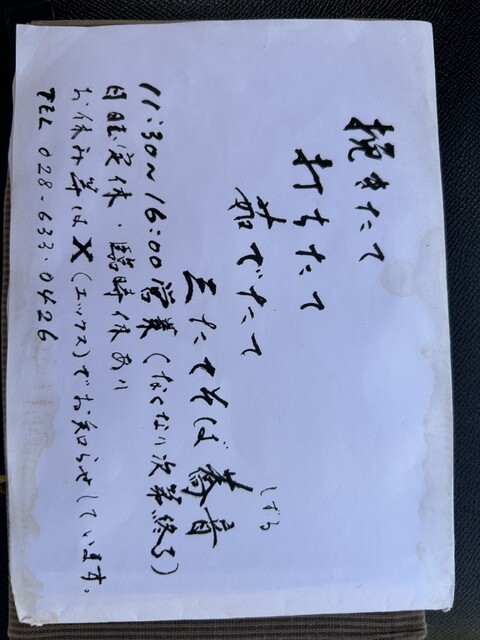 挽きたて
打ちたて
茹でたて
三たてそば 蕎音
しずる
11:30〜16:00営業(なくなり次第終了)
日曜定休・臨時休あり
お休み等はX(エックス)でお知らせしています。
TEL 028-633-0426